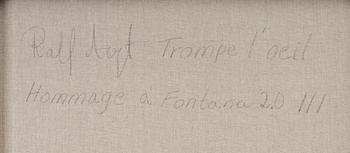 Ralf Trompe l'oeil
Hommage á Fontana 2.0 III